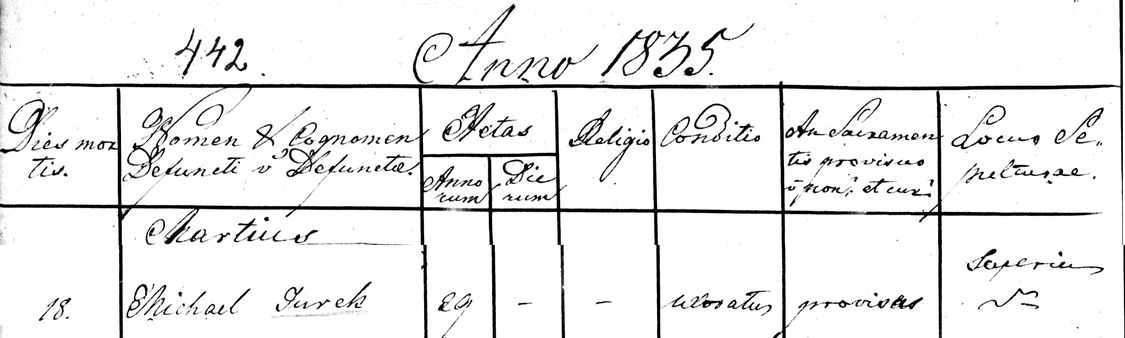 442.
Anno 1835.
Dies mor
tis.
Nomen & Cognomen
Defuncti v Defunctæ.
Aetas
Anno
rum
Die
rum
Religio
Conditio
An Sacramen
tis provisus
v non? et cur?
Locus Se-
pulturae.
Martius
Superius
18. Michael Turek 29 - - uxoratus provisus